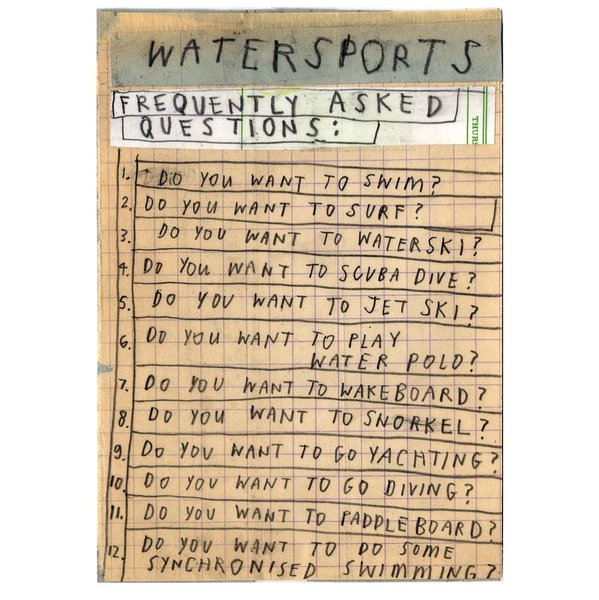 WATERSPORTS
FREQUENTLY ASKED
QUESTIONS:
THUR
1. DO YOU WANT TO SWIM?
2. DO YOU WANT TO SURF?
3. DO YOU WANT TO WATERSKI?
4. DO YOU WANT TO SCUBA DIVE?
5. DO YOU WANT TO JET SKI?
6. DO YOU WANT TO PLAY
WATER POLO?
7. DO YOU WANT TO WAKEBOARD?
8. DO YOU WANT TO SNORKEL?
9. DO YOU WANT TO GO YACHTING?
10. DO YOU WANT TO GO DIVING?
11. DO YOU WANT TO PADDLEBOARD?
12. DO YOU WANT TO DO SOME
SYNCHRONISED SWIMMING?